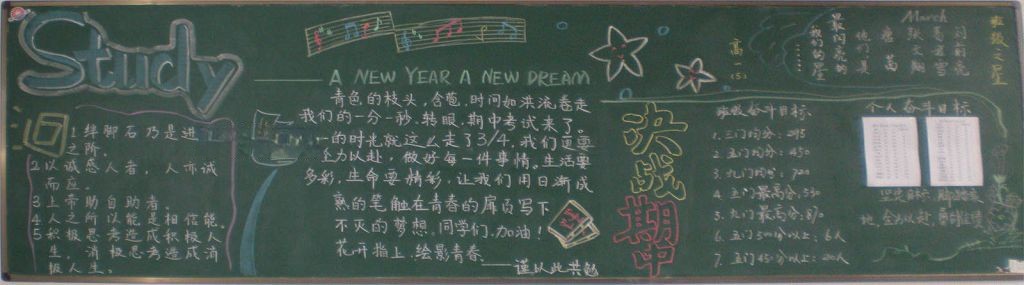 Study
1 绊脚石乃是进
之阶。
2 以诚感人者，人亦诚
而应。
3 上帝助自助者。
4 人之所以能是相信能。
5 积极思考造成积极人
生，消极思考造成消
极人生。
A NEW YEAR A NEW DREAM
青色的枝头，含苞，时间如洪流卷走
我们的一分一秒。转眼，期中考试来了。
一的时光就这么走了3/4，我们更要
全力以赴，做好每一件事情。生活要
多彩，生命要精彩，让我们用日渐成
熟的笔触在青春的扉页写下
不灭的梦想。同学们，加油！
花开指上，绘影青春
——谨以此共勉
决战
期中
高一(5)
班级奋斗目标
1. 三门均分：295
2. 五门均分：450
3. 九门均分：720
4. 五门最高分：530
5. 九门最高分：870
6. 五门500分以上：6人
7. 五门450分以上：20人
最闪亮的
我们的星
March
他们是
班级之星
个人奋斗目标
坚定目标
地，全力以赴，勇往直前